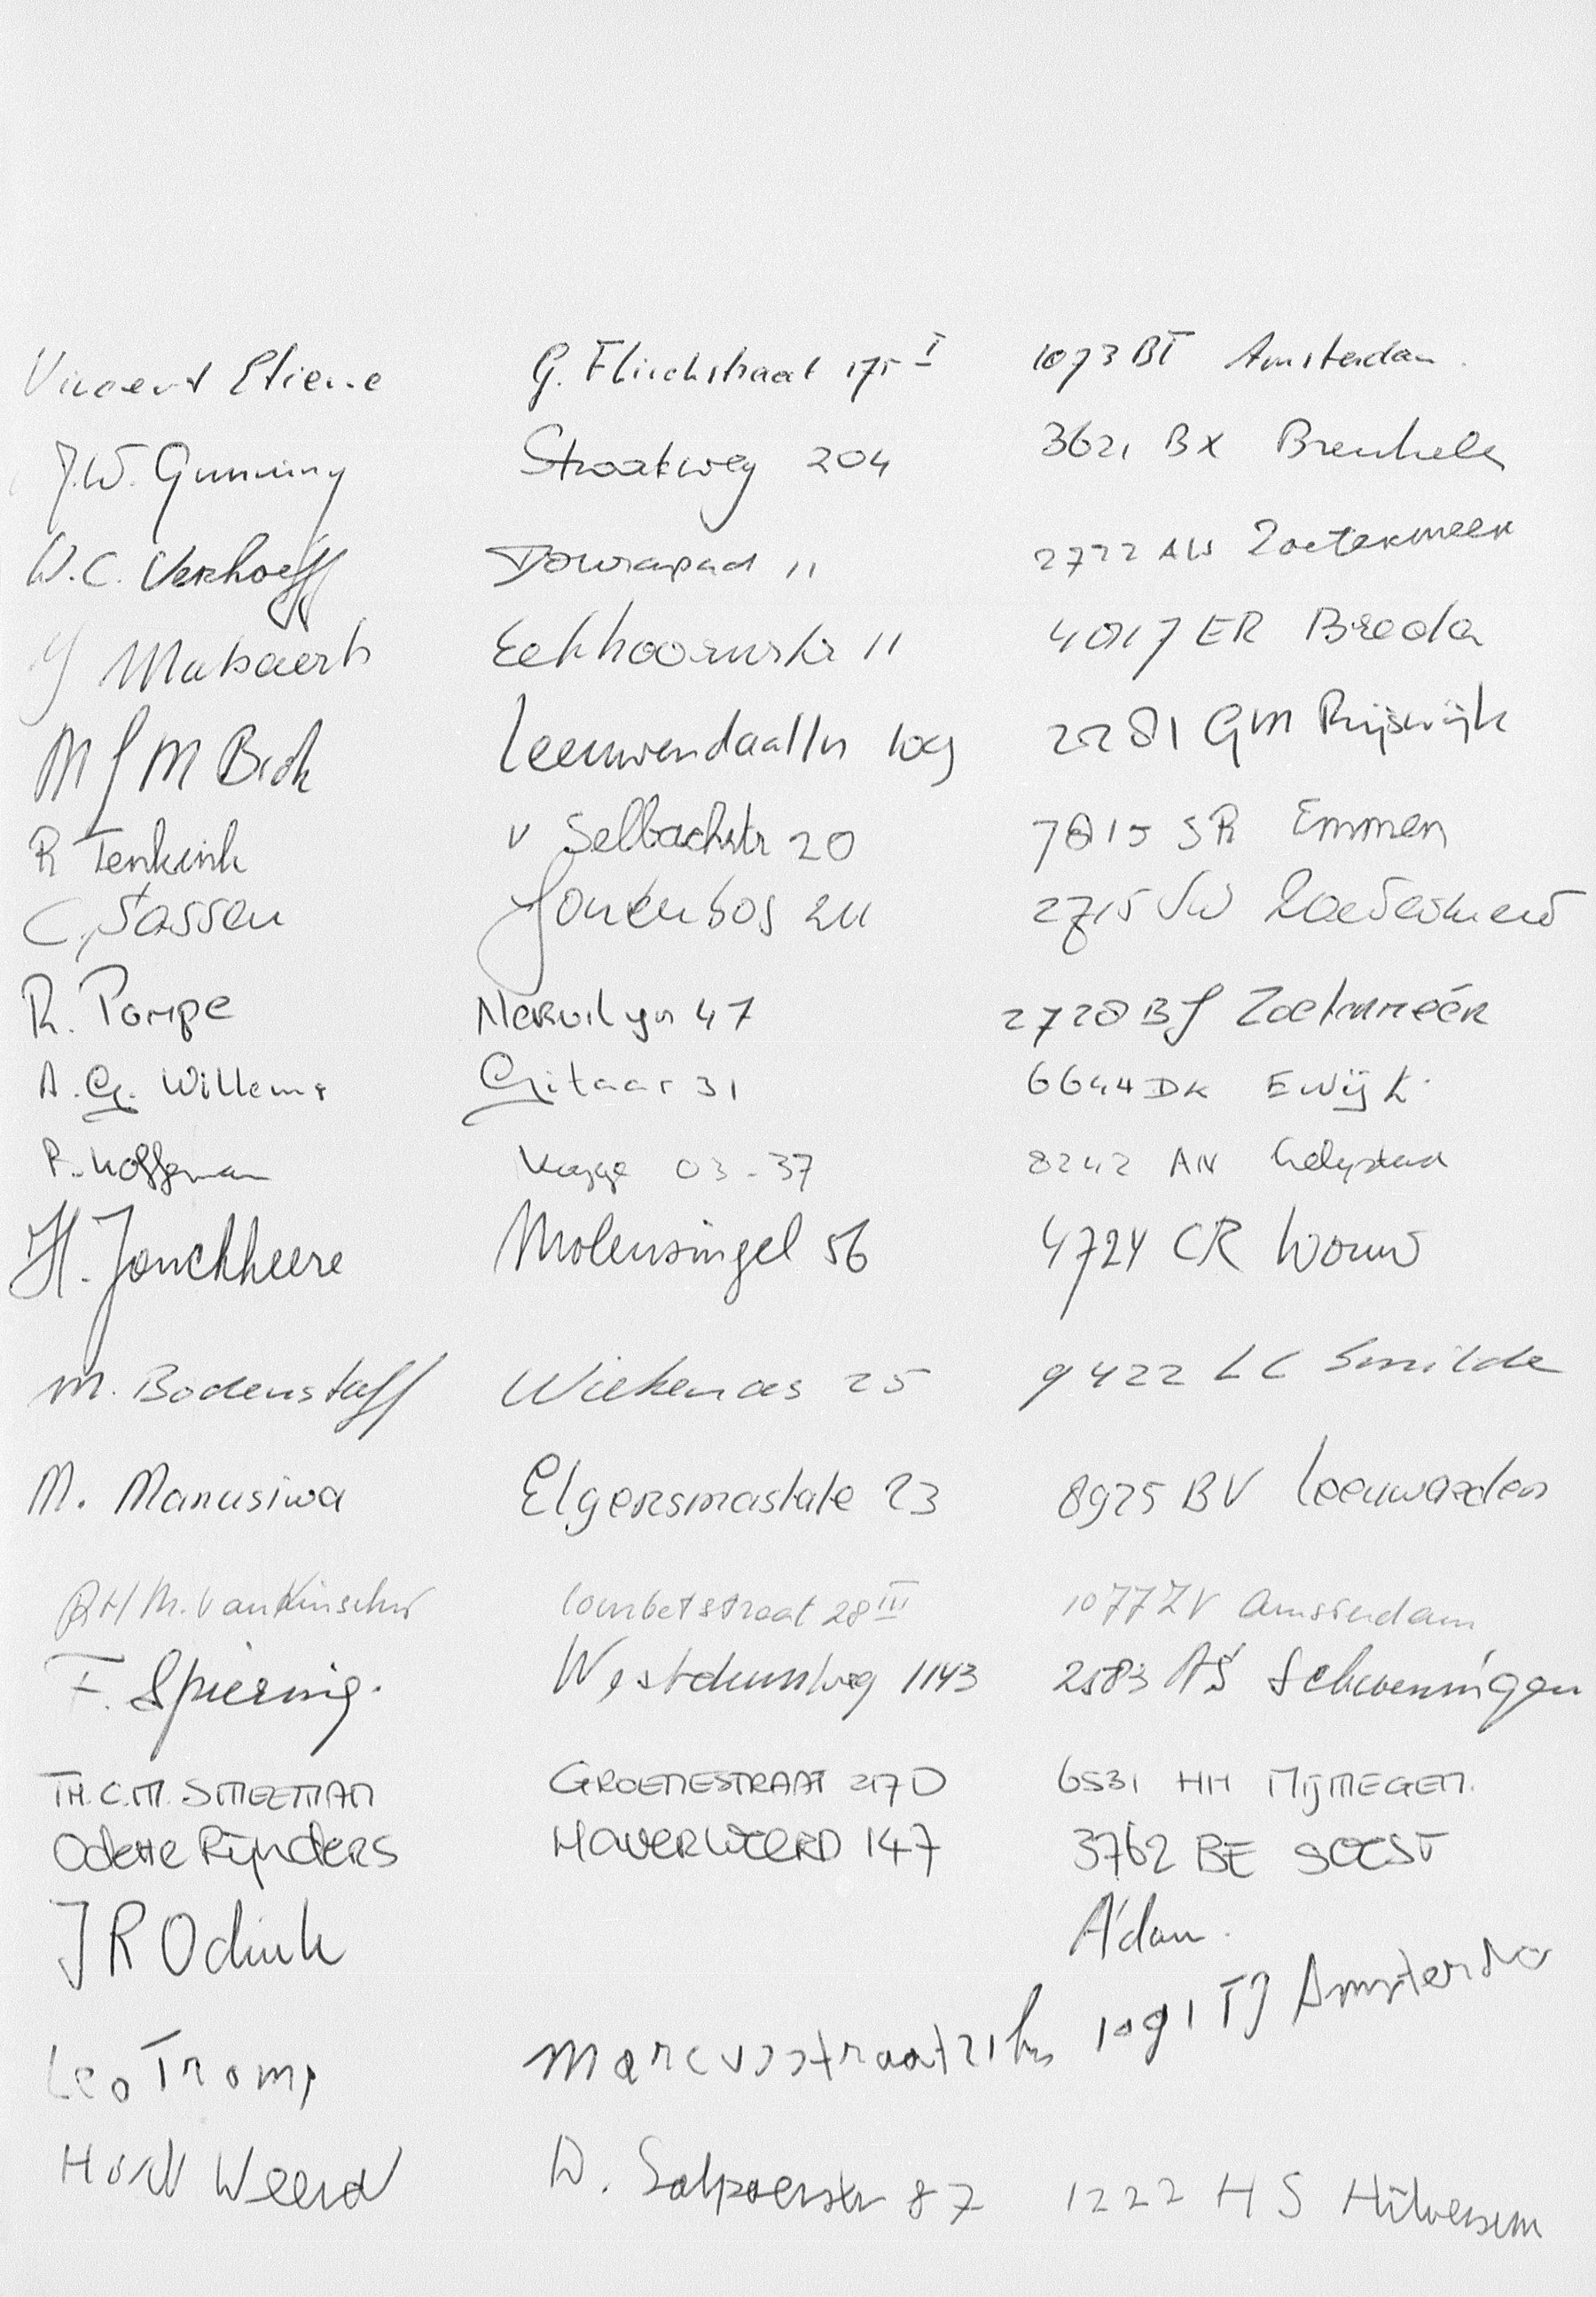 Vincent Etiene G. Flinckstraat 175 I 1073 BT Amsterdam.
J.W. Gunning Straatweg 204 3621 BX Breukelen
W.C. Verhoeff Dourapad 11 2722 AW Zoetermeer
Y Mutsaerts Eekhoornstr 11 4817 ER Breda
M J M Brok Leeuwendaalln 109 2281 GM Rijswijk
R Tenkink v Selbachstr 20 7815 SR Emmen
C, Sassen Jonkenbos 211 2715 SW Zoetermeer
R. Pompe Nervilyn 47 2728 BJ Zoetermeer
A.G. Willems Gitaar 31 6644 DK Ewijk
P. Hoffman Kogge 03-37 8242 AN Lelystad
H. Jonckheere Molensingel 56 4724 CR Wouw
M. Bodenstaff Wiekenas 25 9422 LC Smilde
M. Manusiwa Elgersmastate 23 8925 BV Leeuwarden
RHM. van Kinschot Courbetstraat 28 III 1077 ZV Amsterdam
F. Spiering. Westduinweg 1143 2583 AS Scheveningen
TH.C.M. SMEEMAN GROENESTRAAT 217 D 6531 HH NIJMEGEN.
Odette Rijnders HAVERWEERD 147 3762 BE SOEST
J R Odink A'dam.
Leo Tromp Marcusstraat 21 hs 1091 TJ Amsterdam
Weerd D. 87 1222 HS Hilversum